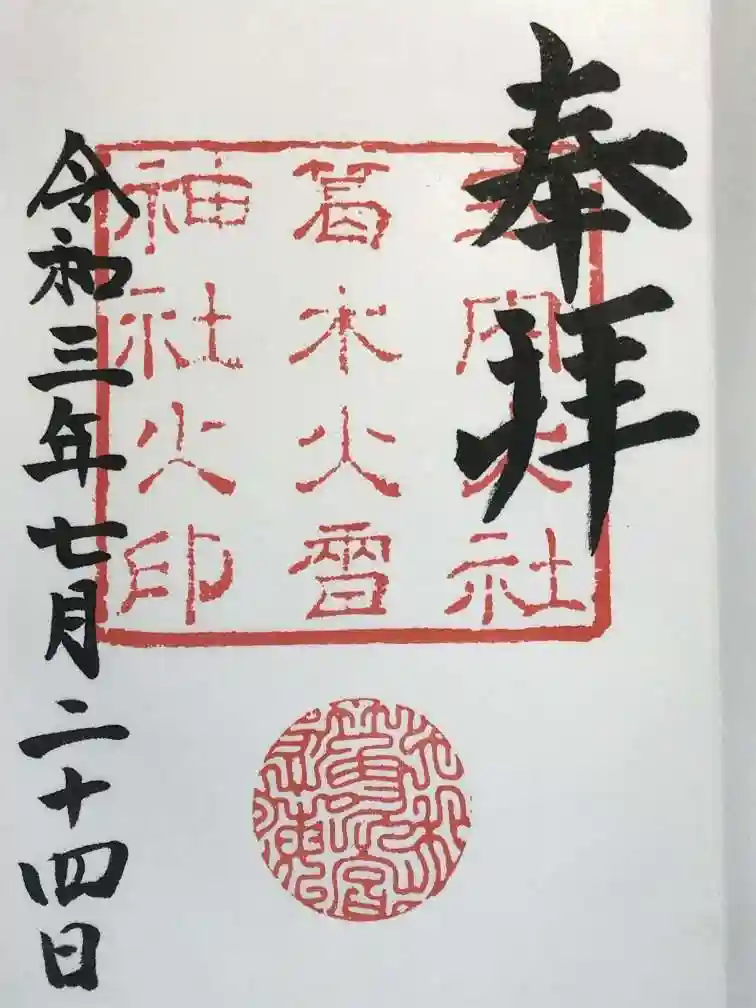 奉拝
式内大社
葛木火雷
神社之印
令和三年七月二十四日